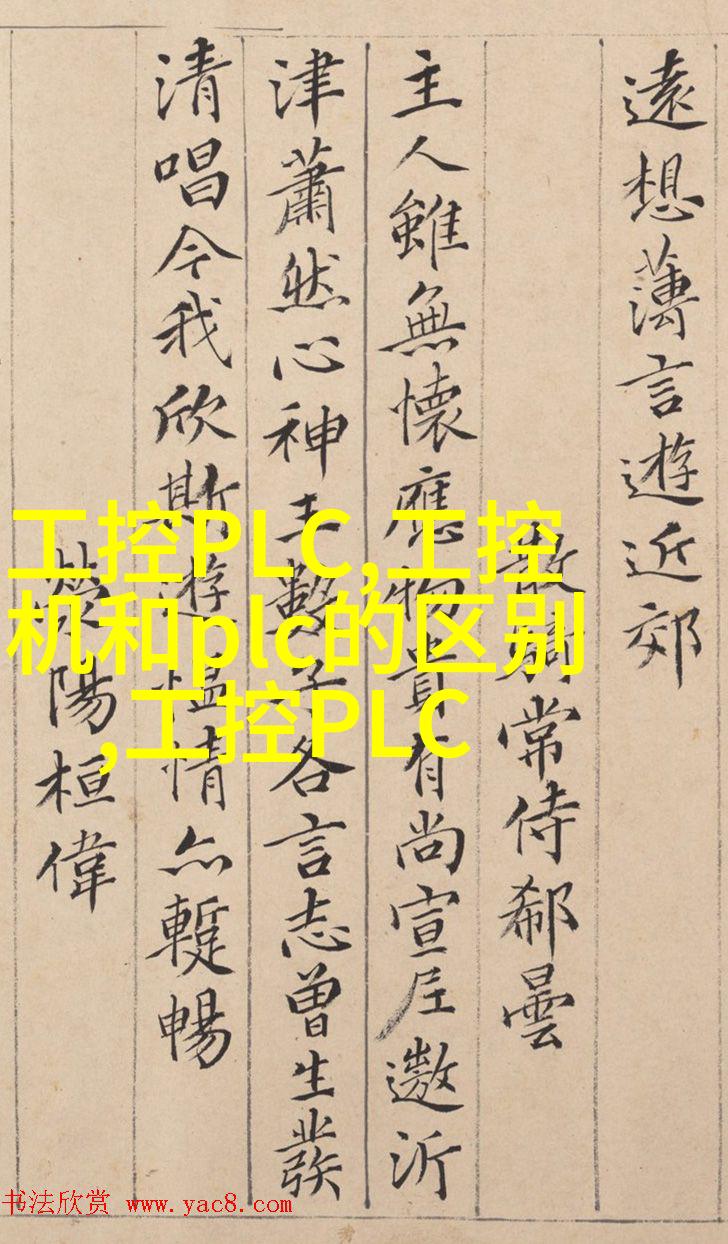 遠想薄言遊近郊
散騎常侍郗曇
主人雖無懷應物貴有尚宣尼遨沂
津蕭然心神王數子各言志曾生發
清唱今我欣斯遊慍情亦蹔暢
滎陽桓偉
工控PLC,工控
机和plc的区别
,工控PLC
书法欣赏 www.yac8.com